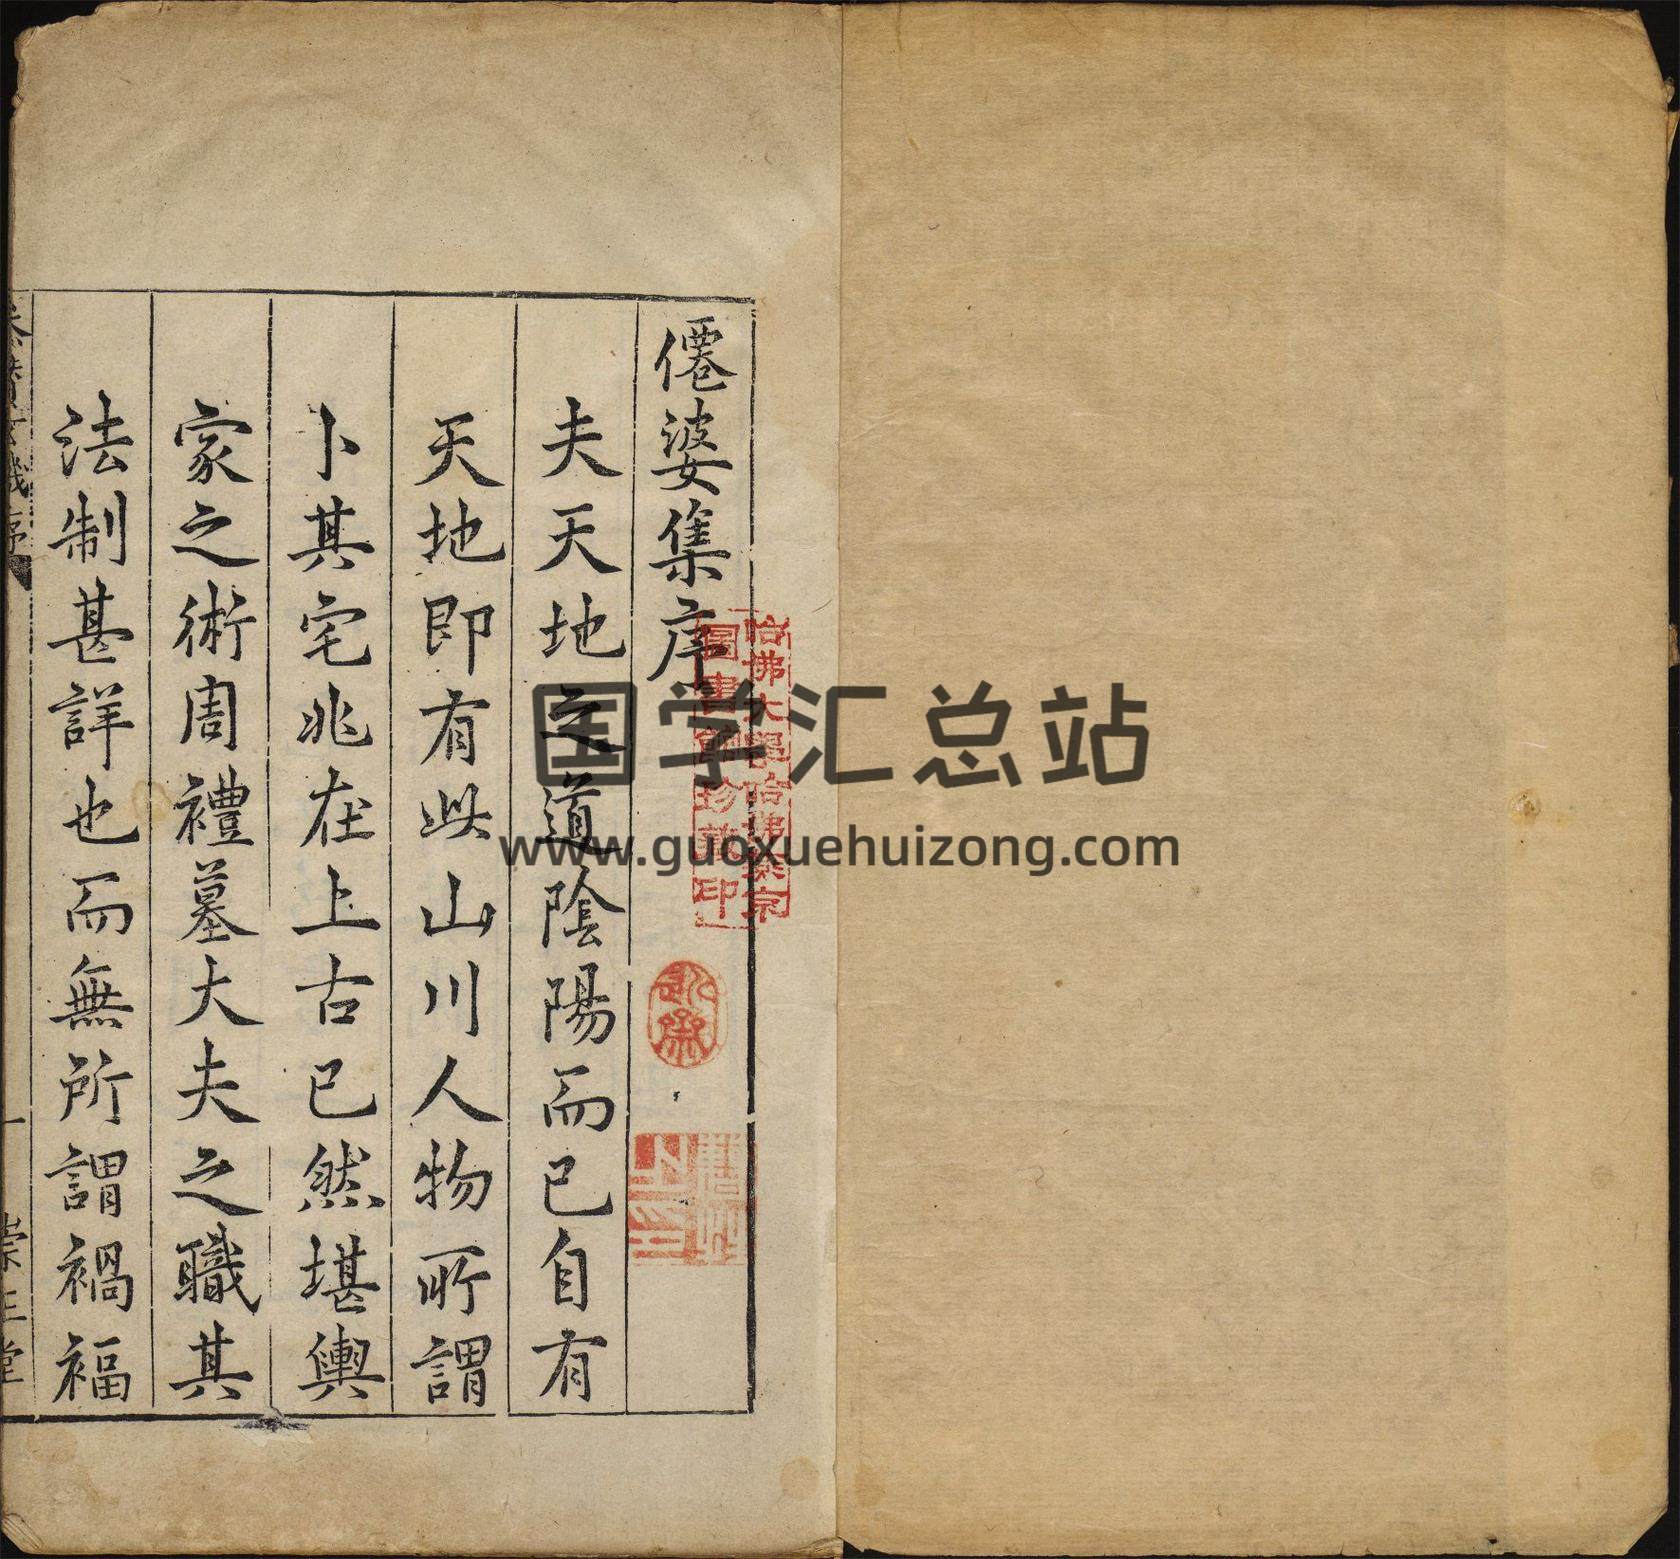 僊婆集序
夫天地之道陰陽而已自有
天地即有此山川人物所謂
卜其宅兆在上古已然堪輿
家之術周禮墓大夫之職其
法制甚詳也而無所謂禍福
一
崇正堂
哈佛大學哈佛燕京
圖書館珍藏印
国学汇总站
www.guoxuehuizong.com